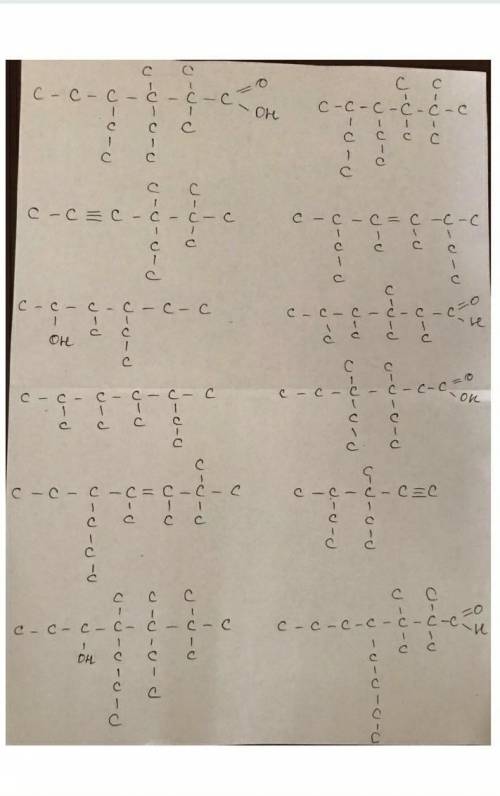 C C
C - C - C - C - C - C = O
OH
C C C
C C
C C
C - C - C - C - C - C
C C C C
C C
C C
C - C ≡ C - C - C - C
C C
C
C - C - C = C - C - C
C C C C
C C
C - C - C - C - C - C
OH C C
C
C
C - C - C - C - C - C = O
H
C C C C
C - C - C - C - C - C
C C C C
C
C C
C - C - C - C - C - C = O
OH
C C
C C
C
C - C - C - C = C - C - C
C C C C
C
C
C - C - C - C ≡ C
C C
C C
C C C
C - C - C - C - C - C - C
OH C C C
C C
C
C C
C - C - C - C - C - C - C = O
H
C C C
C
C
C